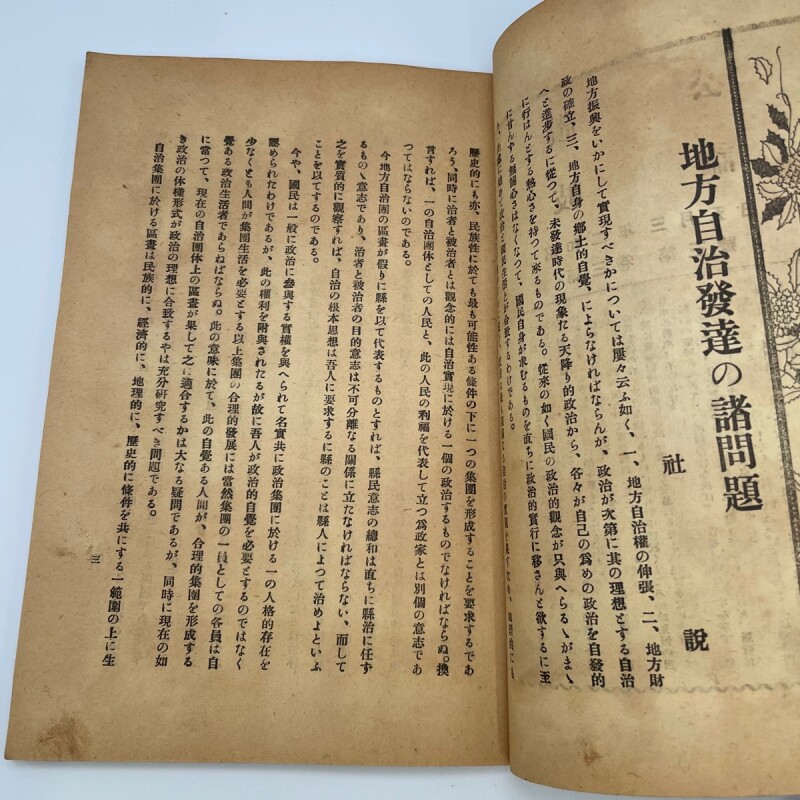 地方自治發達の諸問題
社說
地方振興をいかにして實現すべきかについては屢々云ふ如く、一、地方自治權の伸張、二、地方財
政の確立、三、地方自身の鄕土的自覺、によらなければならんが、政治が次第に其の理想とする自治
へと進步するに從つて、未發達時代の現象たる天降り的政治から、各々が自己の爲めの政治を自發的
に行はんとする熱心さを持つて來るものである。從來の如く國民の政治的觀念が只與へらるゝがまゝ
に甘んずる無關心さはなくなつて、國民自身が求むるものを直ちに政治的實行に移さんと欲するに至
歷史的にも亦、民族性に於ても最も可能性ある條件の下に一つの集團を形成することを要求するであ
ろう、同時に治者と被治者とは觀念的には自治實現に於ける一個の政治するものでなければならぬ。換
言すれば、一の自治團体としての人民と、此の人民の利福を代表して立つ爲政家とは別個の意志であ
つてはならないのである。
今地方自治團の區畫が假りに縣を以て代表するものとすれば、縣民意志の總和は直ちに縣治に任ず
るものゝ意志であり、治者と被治者の目的意志は不可分離なる關係に立たなければならない、而して
之を實質的に觀察すれば、自治の根本思想は吾人に要求するに縣のことは縣人によつて治めよといふ
ことを以てするのである。
今や、國民は一般に政治に參與する實權を與へられて名實共に政治集團に於ける一の人格的存在を
認められたわけであるが、此の權利を附與されたるが故に吾人が政治的自覺を必要とするのではなく
少なくとも人間が集團生活を必要とする以上集團の合理的發展には當然集團の一員としての各員は自
覺ある政治生活者であらねばならぬ。此の意味に於て、此の自覺ある人間が、合理的集團を形成する
に當つて、現在の自治團体上の區畫が果して之に適合するかは大なる疑問であるが、同時に現在の如
き政治の体樣形式が政治の理想に合致するやは充分硏究すべき問題である。
自治集團に於ける區畫は民族的に、經濟的に、地理的に、歷史的に條件を共にする一範圍の上に生
三